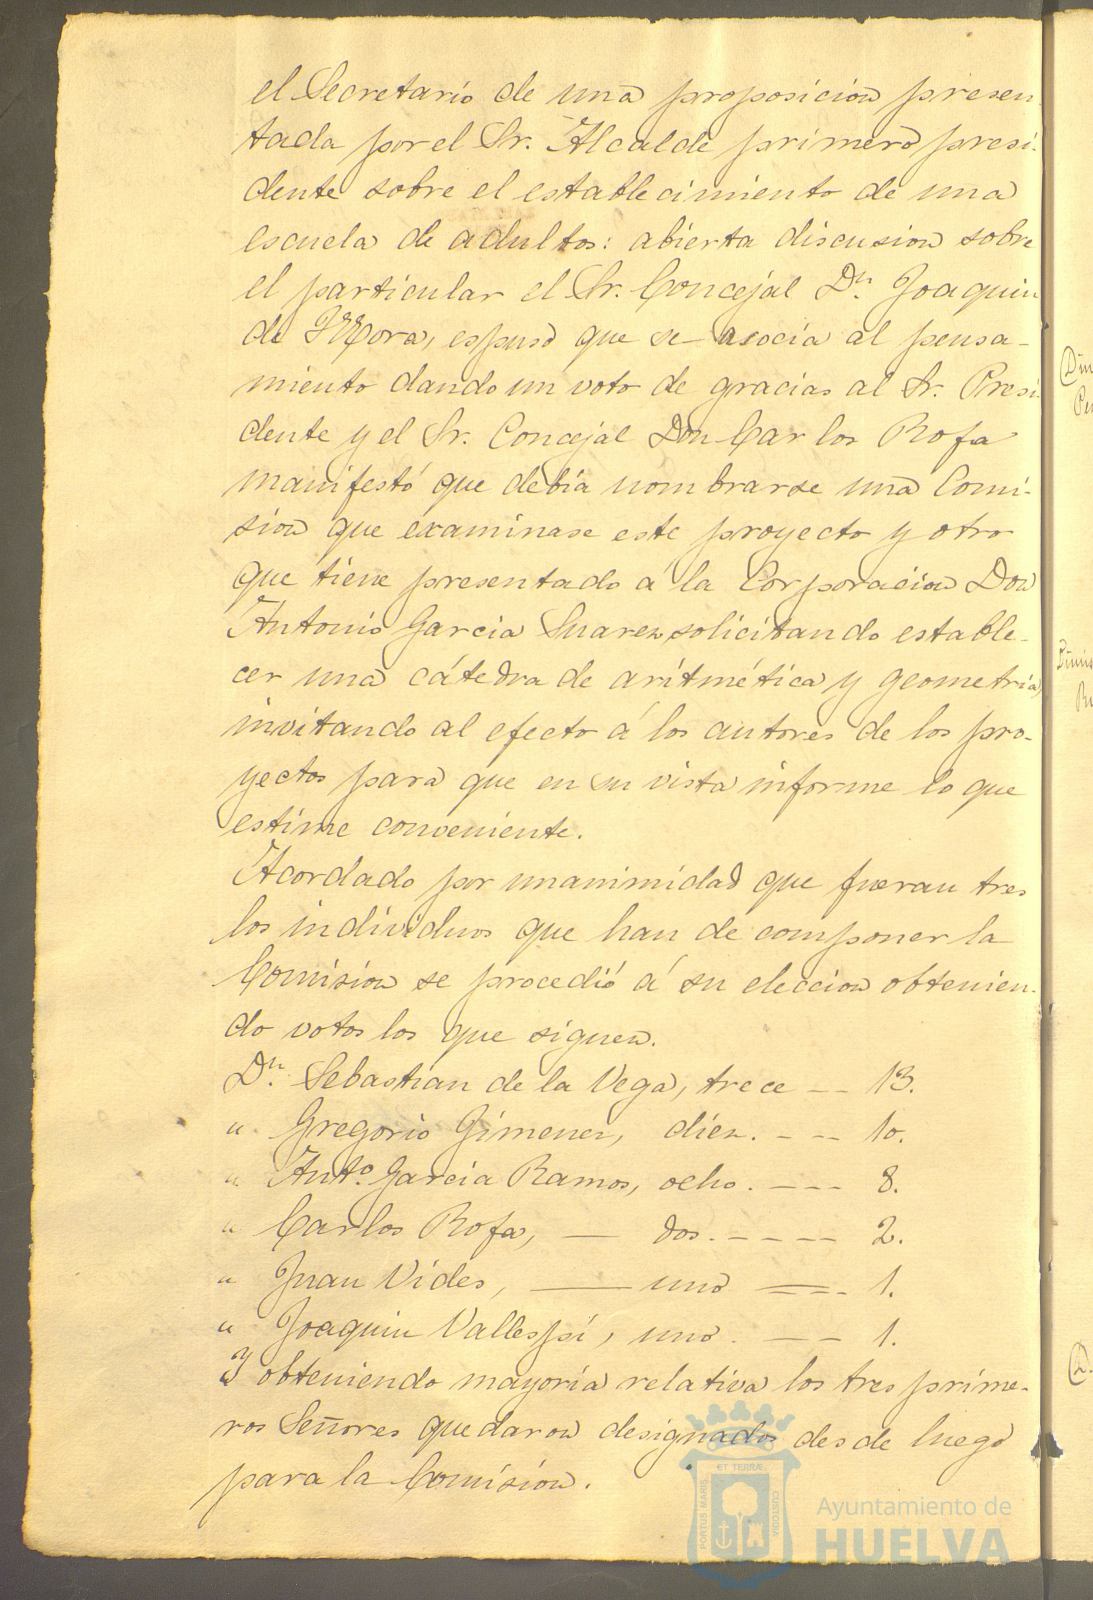 el Secretario de una proposicion presen
tada por el Sr. Alcalde primero presi-
dente sobre el establecimiento de una
escuela de adultos: abierta discusion sobre
el particular el Sr. Concejal Dn. Joaquin
de Mora, espuso que se asocia al pensa-
miento dando un voto de gracias al Sr. Presi-
dente y el Sr. Concejal Don Carlos Rofa
manifestó que debia nombrarse una Comi-
sion que examinase este proyecto y otro
que tiene presentado á la Corporacion Don
Antonio Garcia Suarez, solicitando estable-
cer una cátedra de aritmética y geometria,
invitando al efecto á los autores de los pro-
yectos para que en su vista informe lo que
estime conveniente.
Acordado por unanimidad que fueran tres
los individuos que han de componer la
Comision se procedió á su eleccion obtenien-
do votos los que siguen.
Dn. Sebastian de la Vega, trece -- 13.
" Gregorio Gimenez, diez. --- 10.
" Anto. Garcia Ramos, ocho. ---- 8.
" Carlos Rofa, — dos. ----- 2.
" Juan Vides, — uno ==- 1.
" Joaquin Vallespi, uno. --- 1.
Y obteniendo mayoria relativa los tres prime-
ros Señores quedaron designados desde luego
para la Comision.
PORTUS MARIS
ET TERRÆ
CUSTODIA
Ayuntamiento de
HUELVA